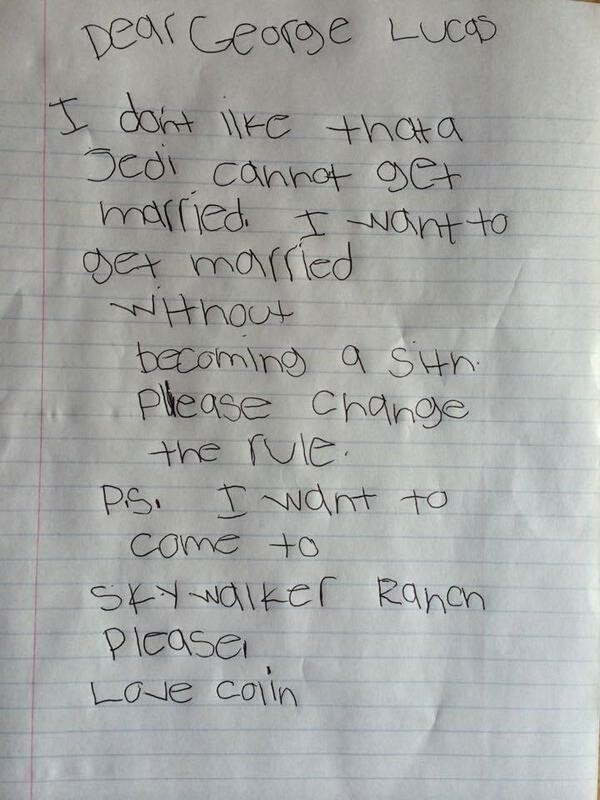 Dear George Lucas
I don't like that a
Jedi cannot get
married. I want to
get married
without
becoming a Sith.
Please change
the rule.
P.S. I want to
come to
Skywalker Ranch
please.
Love Colin